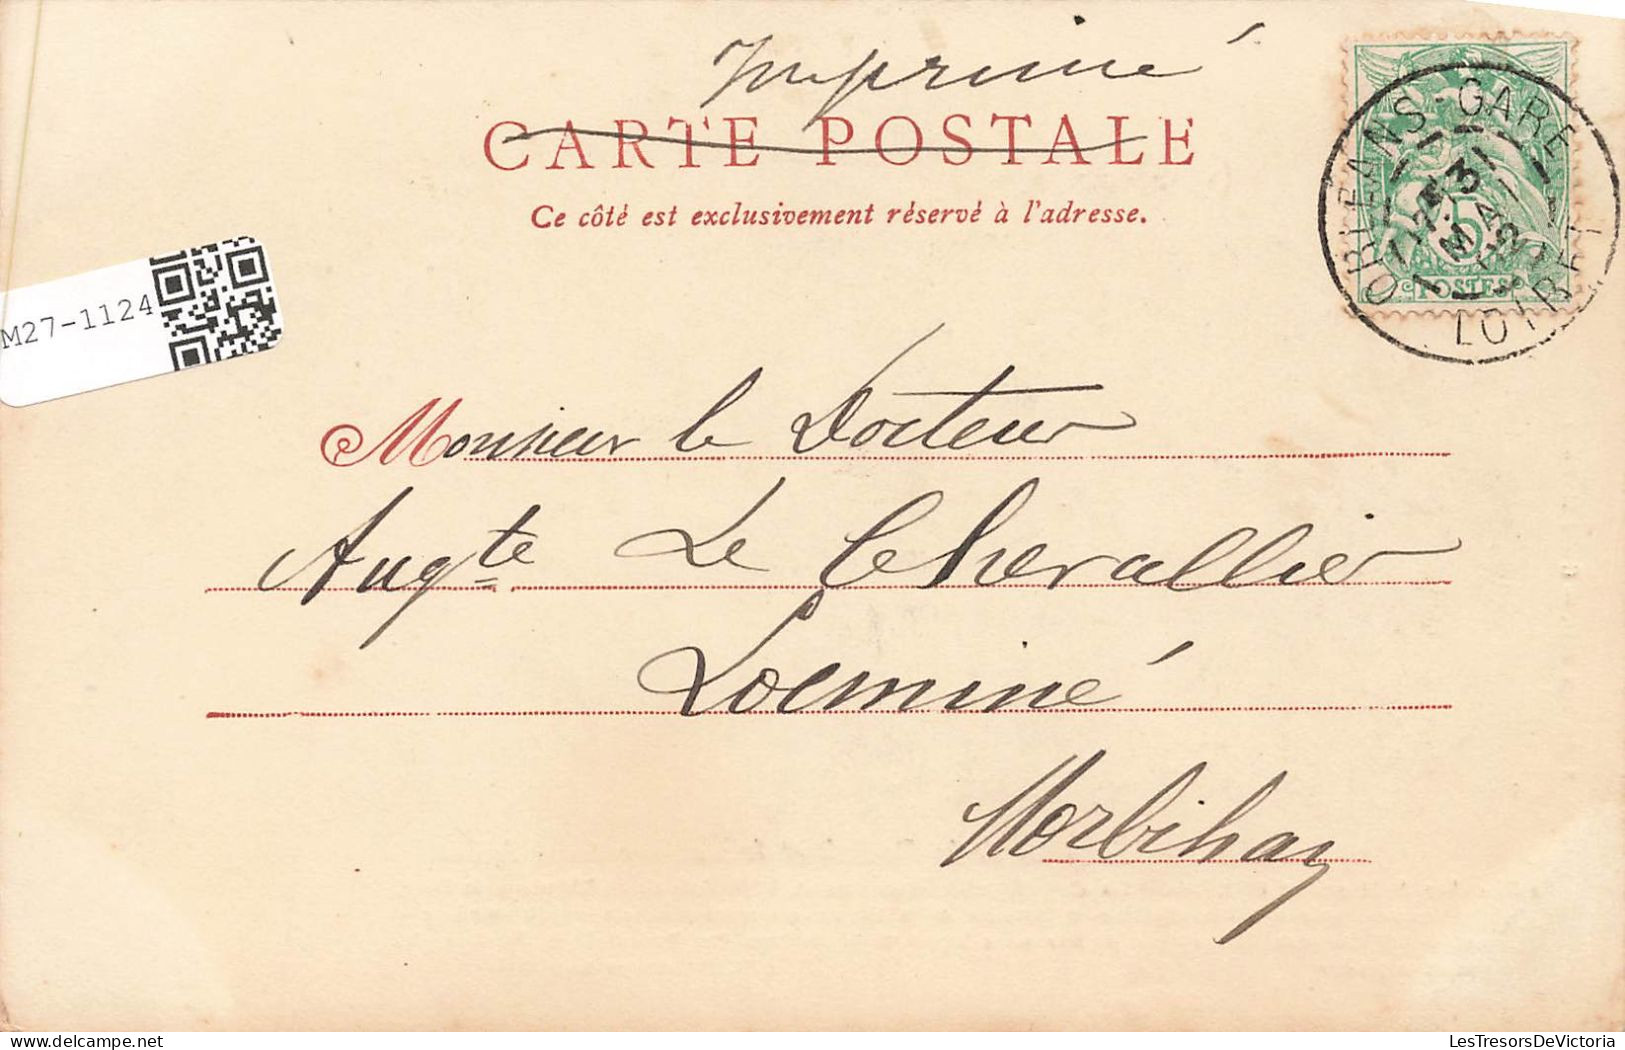 Imprimé
CARTE POSTALE
Ce côté est exclusivement réservé à l'adresse.
ORLEANS-GARE
LOIRET
5
POSTES
M27-1124
Monsieur le Docteur
Augte Le Chevallier
Locminé
Morbihan
LesTresorsDeVictoria